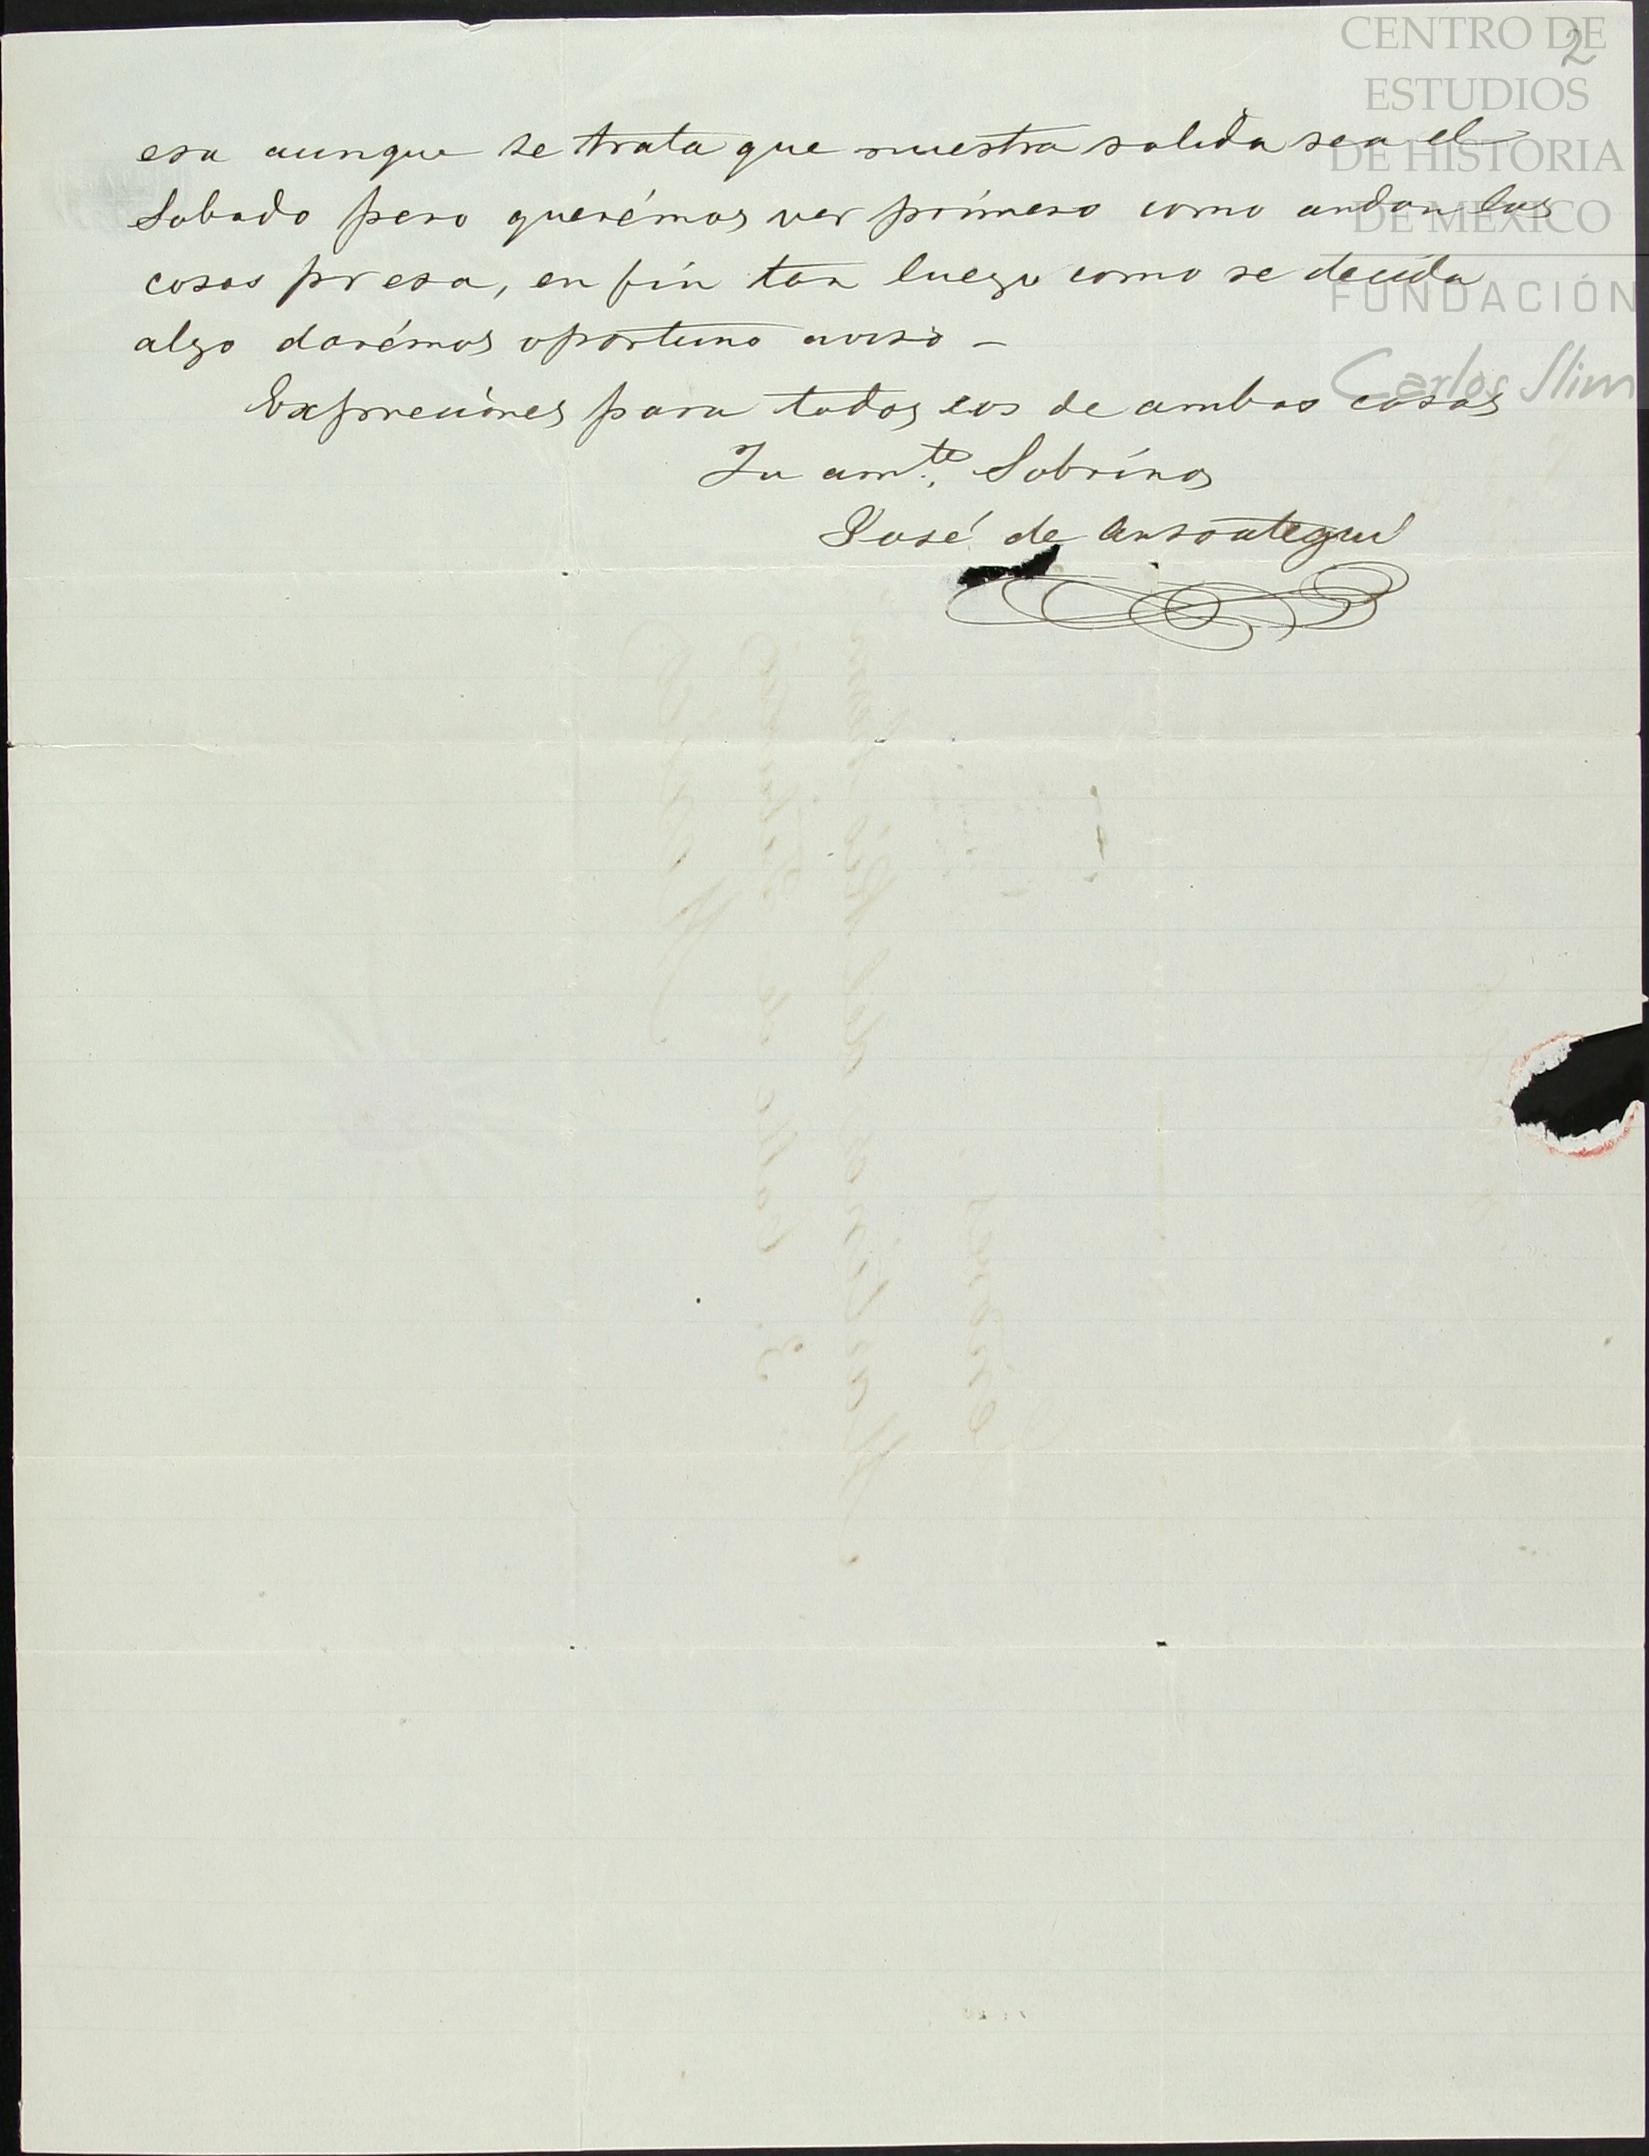 2
CENTRO DE
ESTUDIOS
DE HISTORIA
DE MEXICO
FUNDACIÓN
Carlos Slim
esa aunque se trata que nuestra salida sea el
Sabado pero querémos ver primero como andan las
cosas pr esa, en fin tan luego como se decida
algo darémos oportuno aviso —
Expreciónes para todos los de ambas casas
Tu amte. Sobrinos
José de Ansoategui